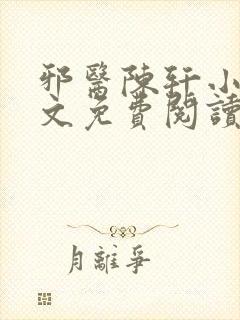 邪醫陳軒小
文免費閱讀
月離爭